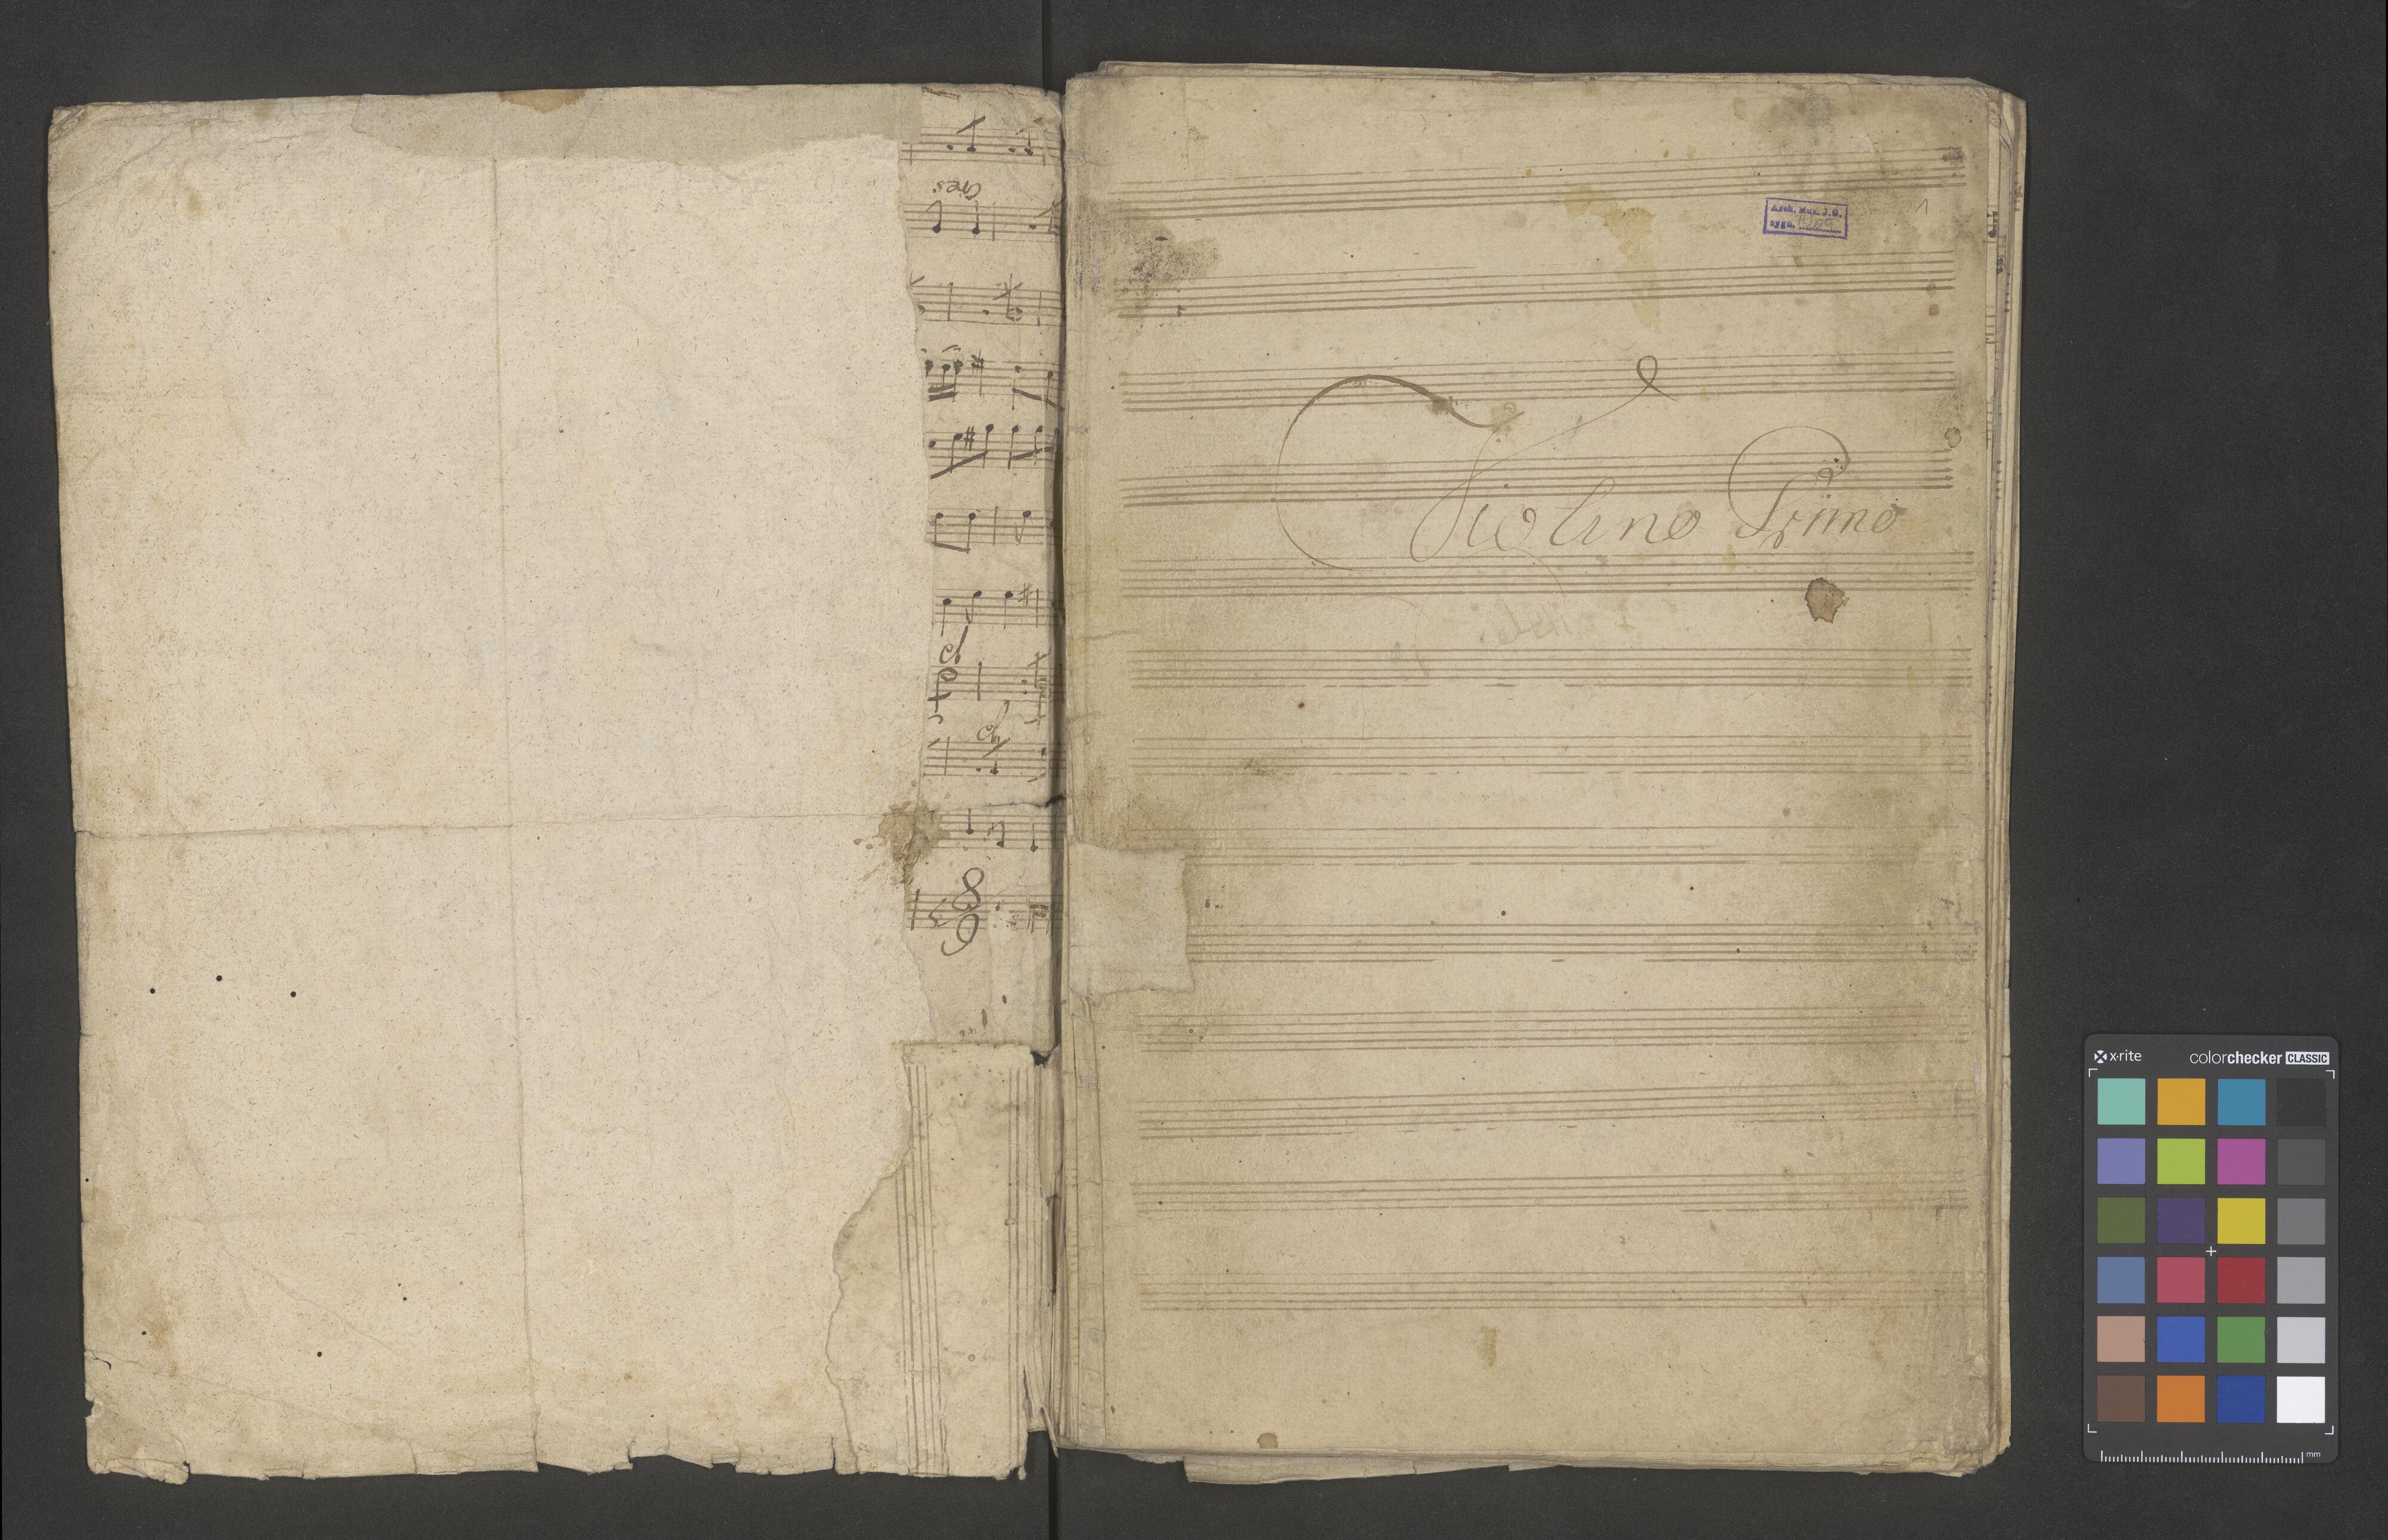 Cres:
8
6
Arch. Mus. J.G.
sygn.
1
Violino Primo
x-rite
colorchecker CLASSIC
mm